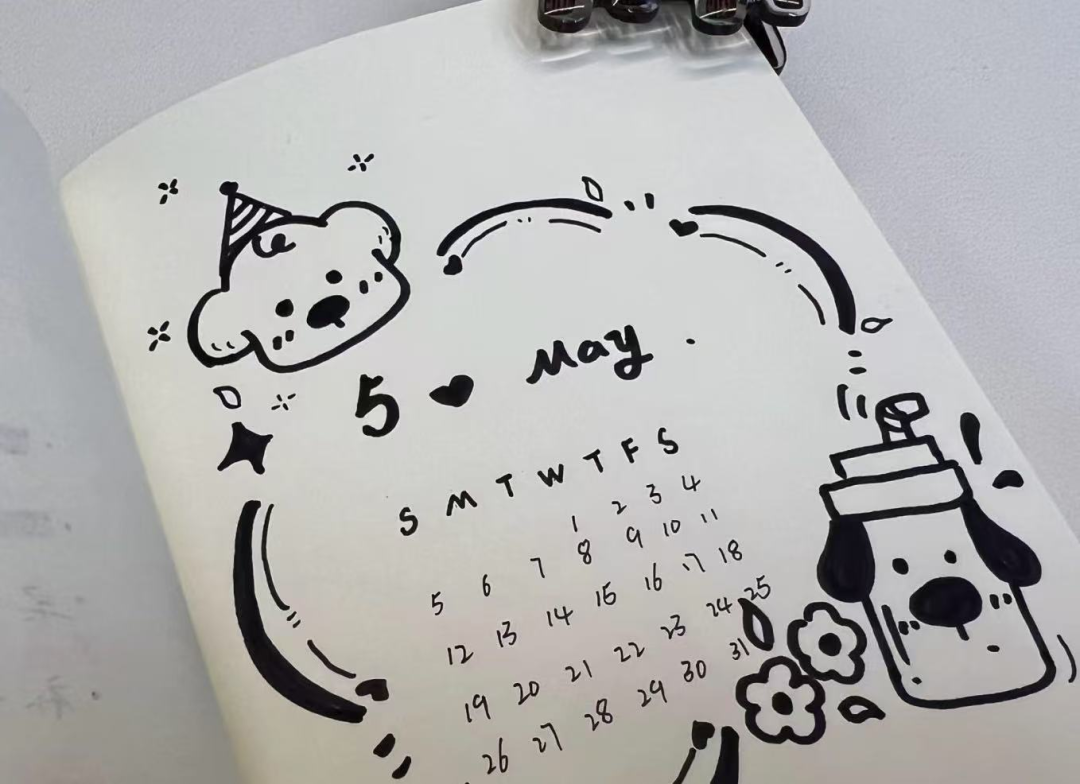 5 ♥ May .
S M T W T F S
1 2 3 4
5 6 7 8 9 10 11
12 13 14 15 16 17 18
19 20 21 22 23 24 25
26 27 28 29 30 31